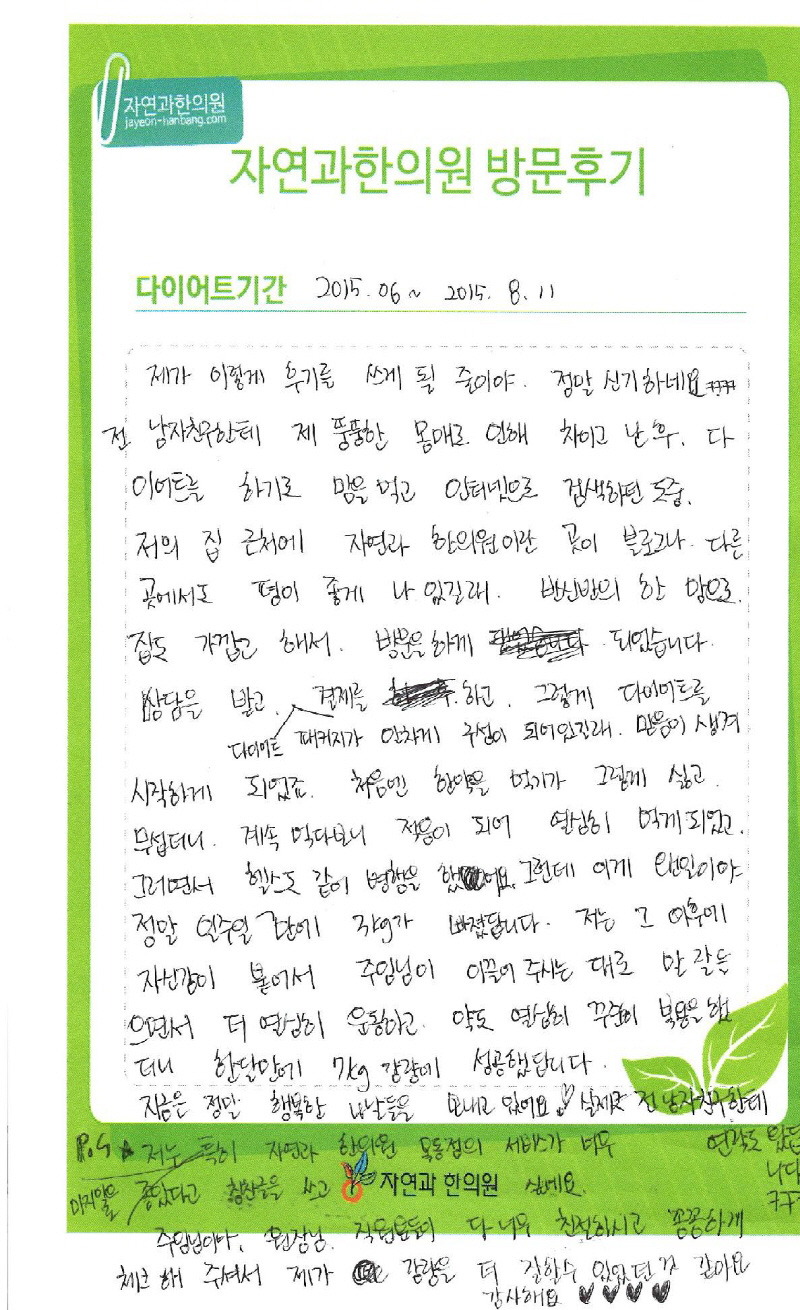 자연과한의원
jayeon-hanbang.com
자연과한의원 방문후기
다이어트기간 2015.06 ~ 2015. 8. 11
제가 이렇게 후기를 쓰게 될 줄이야. 정말 신기하네요 ㅋㅋㅋ
전 남자친구한테 제 뚱뚱한 몸매로 인해 차이고 난 후. 다
이어트를 하기로 맘을 먹고 인터넷으로 검색하던 도중.
저의 집 근처에 자연과 한의원이란 곳이 블로그나 다른
곳에서도 평이 좋게 나 있길래. 반신반의 한 맘으로.
집도 가깝고 해서. 방문을 하게 되었습니다.
상담을 받고, 결제를 하고, 그렇게 다이어트를
다이어트 패키지가 알차게 구성이 되어있길래. 믿음이 생겨
시작하게 되었죠. 처음엔 한약을 먹기가 그렇게 싫고
무섭더니. 계속 먹다보니 적응이 되어 열심히 먹게되었고.
그러면서 헬스도 같이 병행을 했어요. 그런데 이게 왠일이야
정말 일주일 만에 3kg가 빠졌답니다. 저는 그 이후에
자신감이 붙어서 주임님이 이끌어 주시는 대로 만 잘 들
으면서 더 열심히 운동하고. 약도 열심히 꾸준히 복용을 했
더니 한달만에 7kg 감량에 성공했답니다.
지금은 정말 행복한 나날들을 보내고 있어요 ♡ 실제로 전 남자친구한테
연락도 왔답니다 ㅋㅋㅋ
P.S ★ 저는 특히 자연과 한의원 목동점의 서비스가 너무
마지막을 좋았다고 칭찬글을 쓰고 싶네요.
자연과 한의원
주임님이나, 원장님, 직원분들이 다 너무 친절하시고 꼼꼼하게
체크 해 주셔서 제가 감량을 더 잘할수 있었던 것 같아요
감사해요 ♥ ♥ ♥ ♥